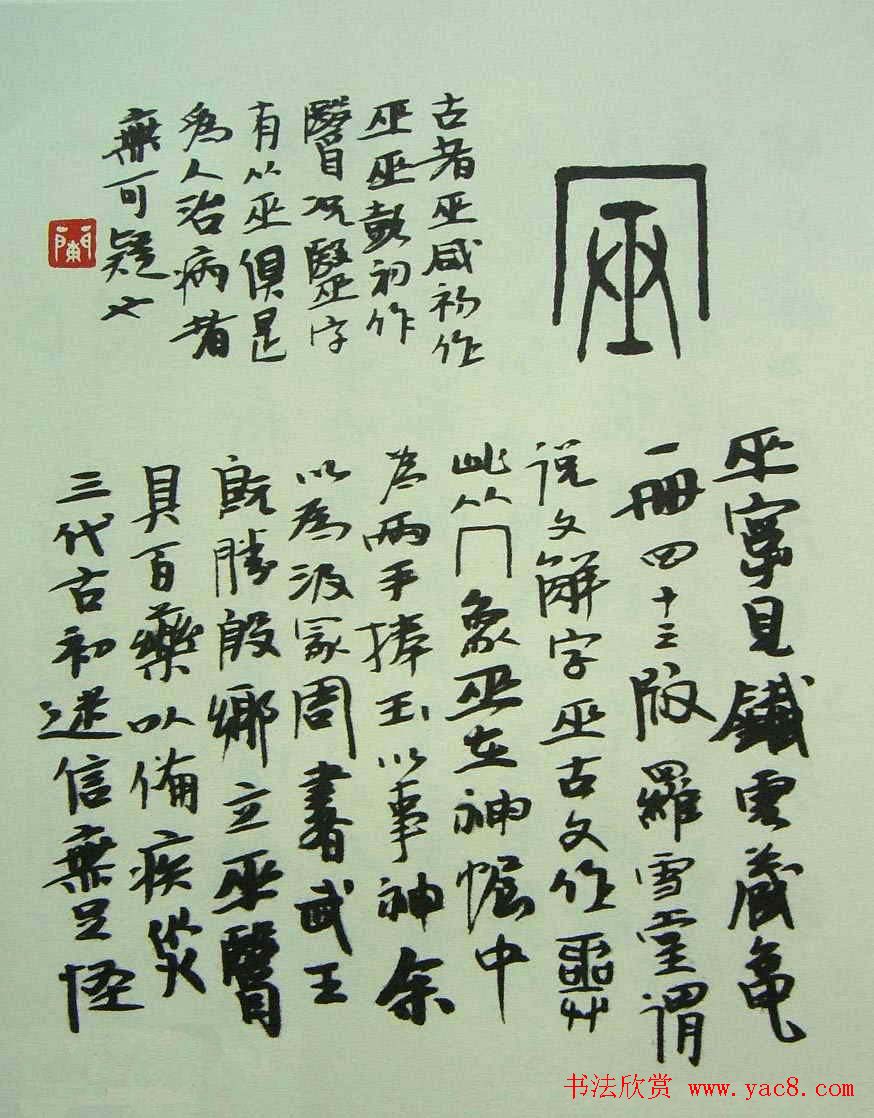 巫見鐵雲藏龜
一冊四十三版羅雪堂謂
說文解字巫古文作𢍮
此从冂象巫在神幄中
為兩手捧玉以事神余
以為汲冢周書武王
既勝殷鄉立巫醫
具百藥以備疾災
三代古初迷信無足怪
古者巫咸初作
巫巫彭初作
醫況毉字
有从巫俱是
為人治病者
無可疑也
书法欣赏 www.yac8.com